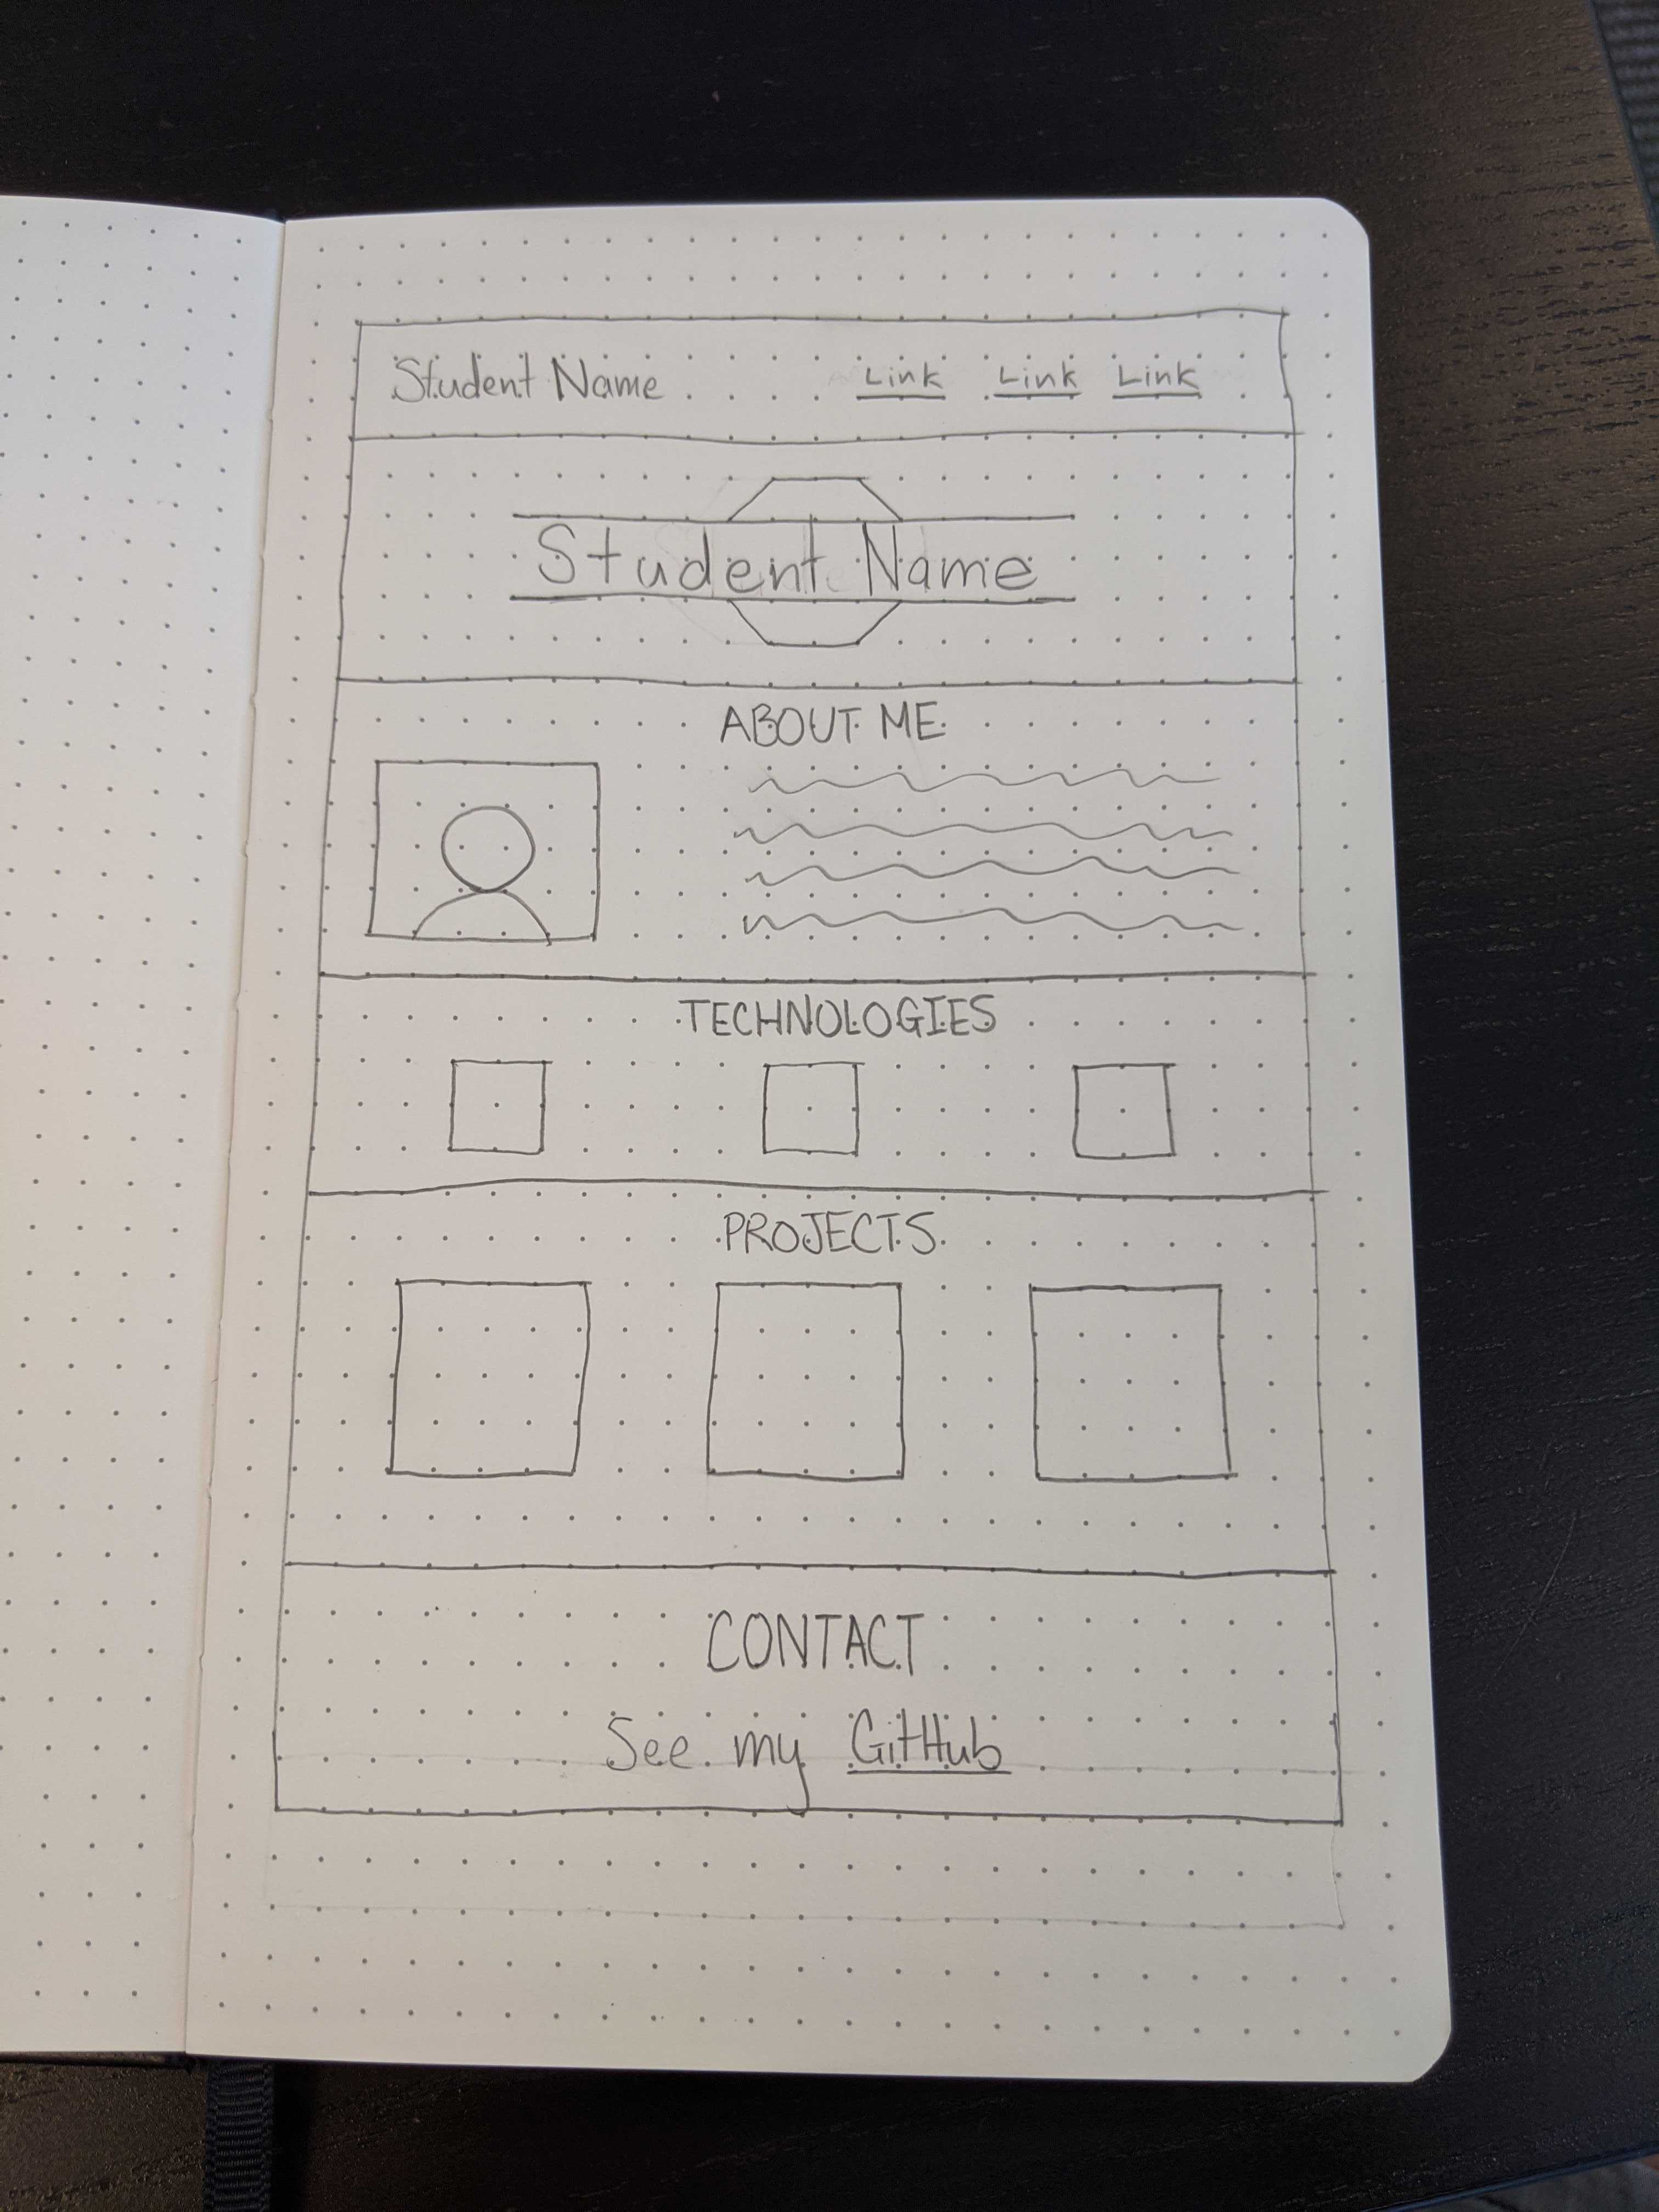 Student Name Link Link Link
Student Name
ABOUT ME
TECHNOLOGIES
PROJECTS
CONTACT
See my GitHub